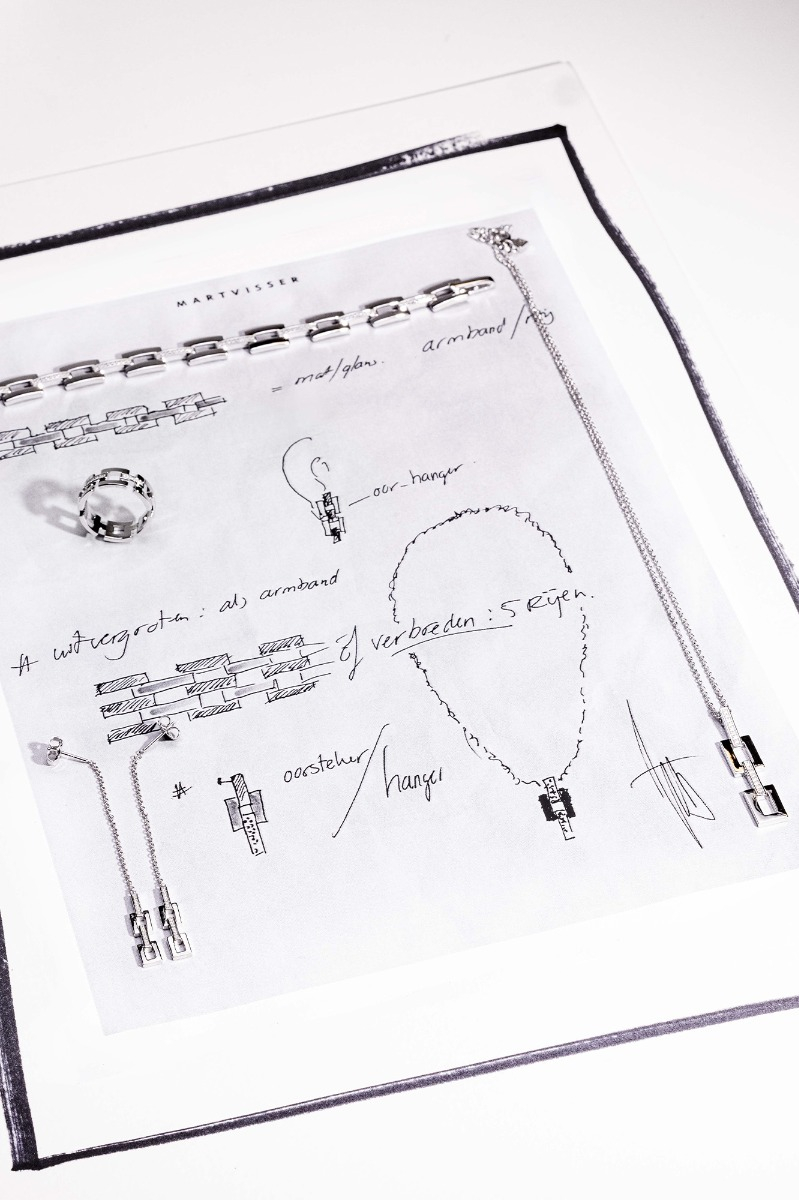 MARTVISSER
= mat/glans. armband/
oor-hanger
# uitvergroten: als armband
of verbreden: 5 Rijen.
# oorsteker/hanger